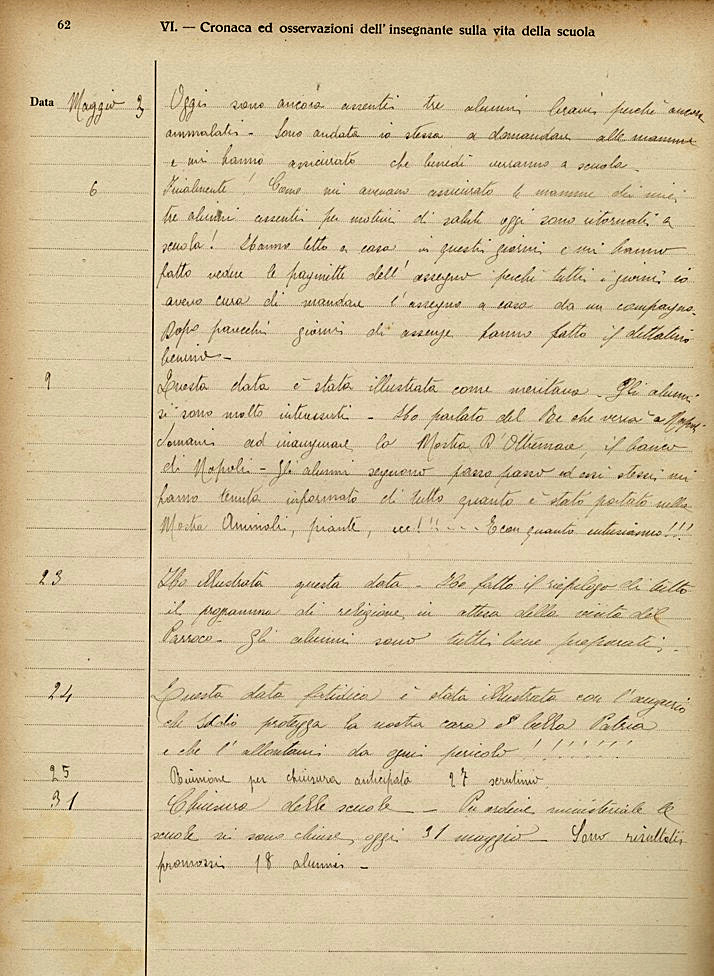 62
VI. — Cronaca ed osservazioni dell'insegnante sulla vita della scuola
Data Maggio 3 Oggi sono ancora assenti tre alunni bravi perchè ancora
ammalati - Sono andata io stessa a domandare alle mamme
e mi hanno assicurato che lunedì verranno a scuola.
6 Finalmente! Come mi avevano assicurato le mamme dei miei
tre alunni assenti per motivi di salute oggi sono ritornati a
scuola! Hanno letto a casa in questi giorni e mi hanno
fatto vedere le paginette dell'assegno perchè tutti i giorni io
avevo cura di mandare l'assegno a casa da un compagno.
Dopo parecchi giorni di assenze hanno fatto il dettatino
benino -
9 Questa data è stata illustrata come meritava - Gli alunni
si sono molto interessati - Ho parlato del Re che verrà a Napoli
domani ad inaugurare la Mostra D'Oltremare, il banco
di Napoli - Gli alunni seguono passo passo ed essi stessi mi
hanno tenuta informata di tutto quanto è stato portato nella
Mostra Animali, piante, ecc!!! - - - E con quanto entusiasmo!!!
23 Ho illustrata questa data - Ho fatto il riepilogo di tutto
il programma di religione in attesa della venuta del
Parroco - Gli alunni sono tutti bene preparati -
24 Questa data fatidica è stata illustrata con l'augurio
che Iddio protegga la nostra cara e bella Patria
e che l'allontani da ogni pericolo!!!!!!!
25 Riunione per chiusura anticipata 27 scrutinio
31 Chiusura delle scuole - Per ordine ministeriale le
scuole si sono chiuse, oggi 31 maggio - Sono risultati
promossi 18 alunni -